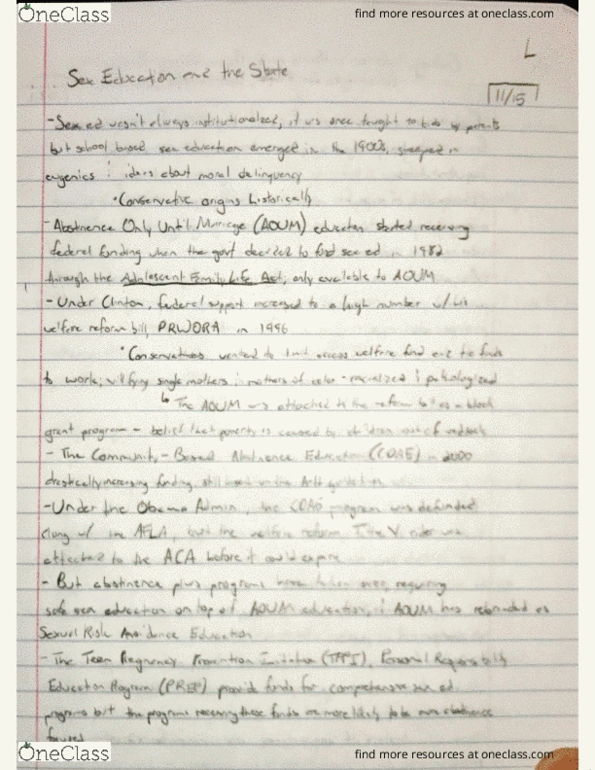 OneClass
find more resources at oneclass.com
L
Sex Education and the State
11/15
- Sex ed wasn't always institutionalized, it was once taught to kids by parents
but school based sex education emerged in the 1900s, steeped in
eugenics & ideas about moral delinquency
• Conservative origins historically
- Abstinence Only Until Marriage (AOUM) education started receiving
federal funding when the govt decided to fund sex ed in 1982
through the Adolescent Family Life Act, only available to AOUM
- Under Clinton, federal support increased to a high number w/
welfare reform bill, PRWORA in 1996
• Conservatives wanted to limit access welfare fund and tie funds
to work; vilifying single mothers & mothers of color - racialized & pathologized
↳ The AOUM was attached to the reform bill as a block
grant program - belief that poverty is caused by children out of wedlock
- The Community-Based Abstinence Education (CBAE) in 2000
drastically increasing funding, still based on the
- Under the Obama Admin, the program was defunded
along w/ the AFLA, but the welfare reform Title V rider was
attached to the ACA before it could expire
- But abstinence plus programs have taken over, requiring
safe sex education on top of AOUM education, & AOUM has rebranded as
Sexual Risk Avoidance Education
- The Teen Pregnancy Prevention Initiative (TPPI), Personal Responsibility
Education Program (PREP) provide funds for comprehensive sex ed.
programs but the programs receiving these funds are more likely to be more abstinence
focused
OneClass
find more resources at oneclass.com